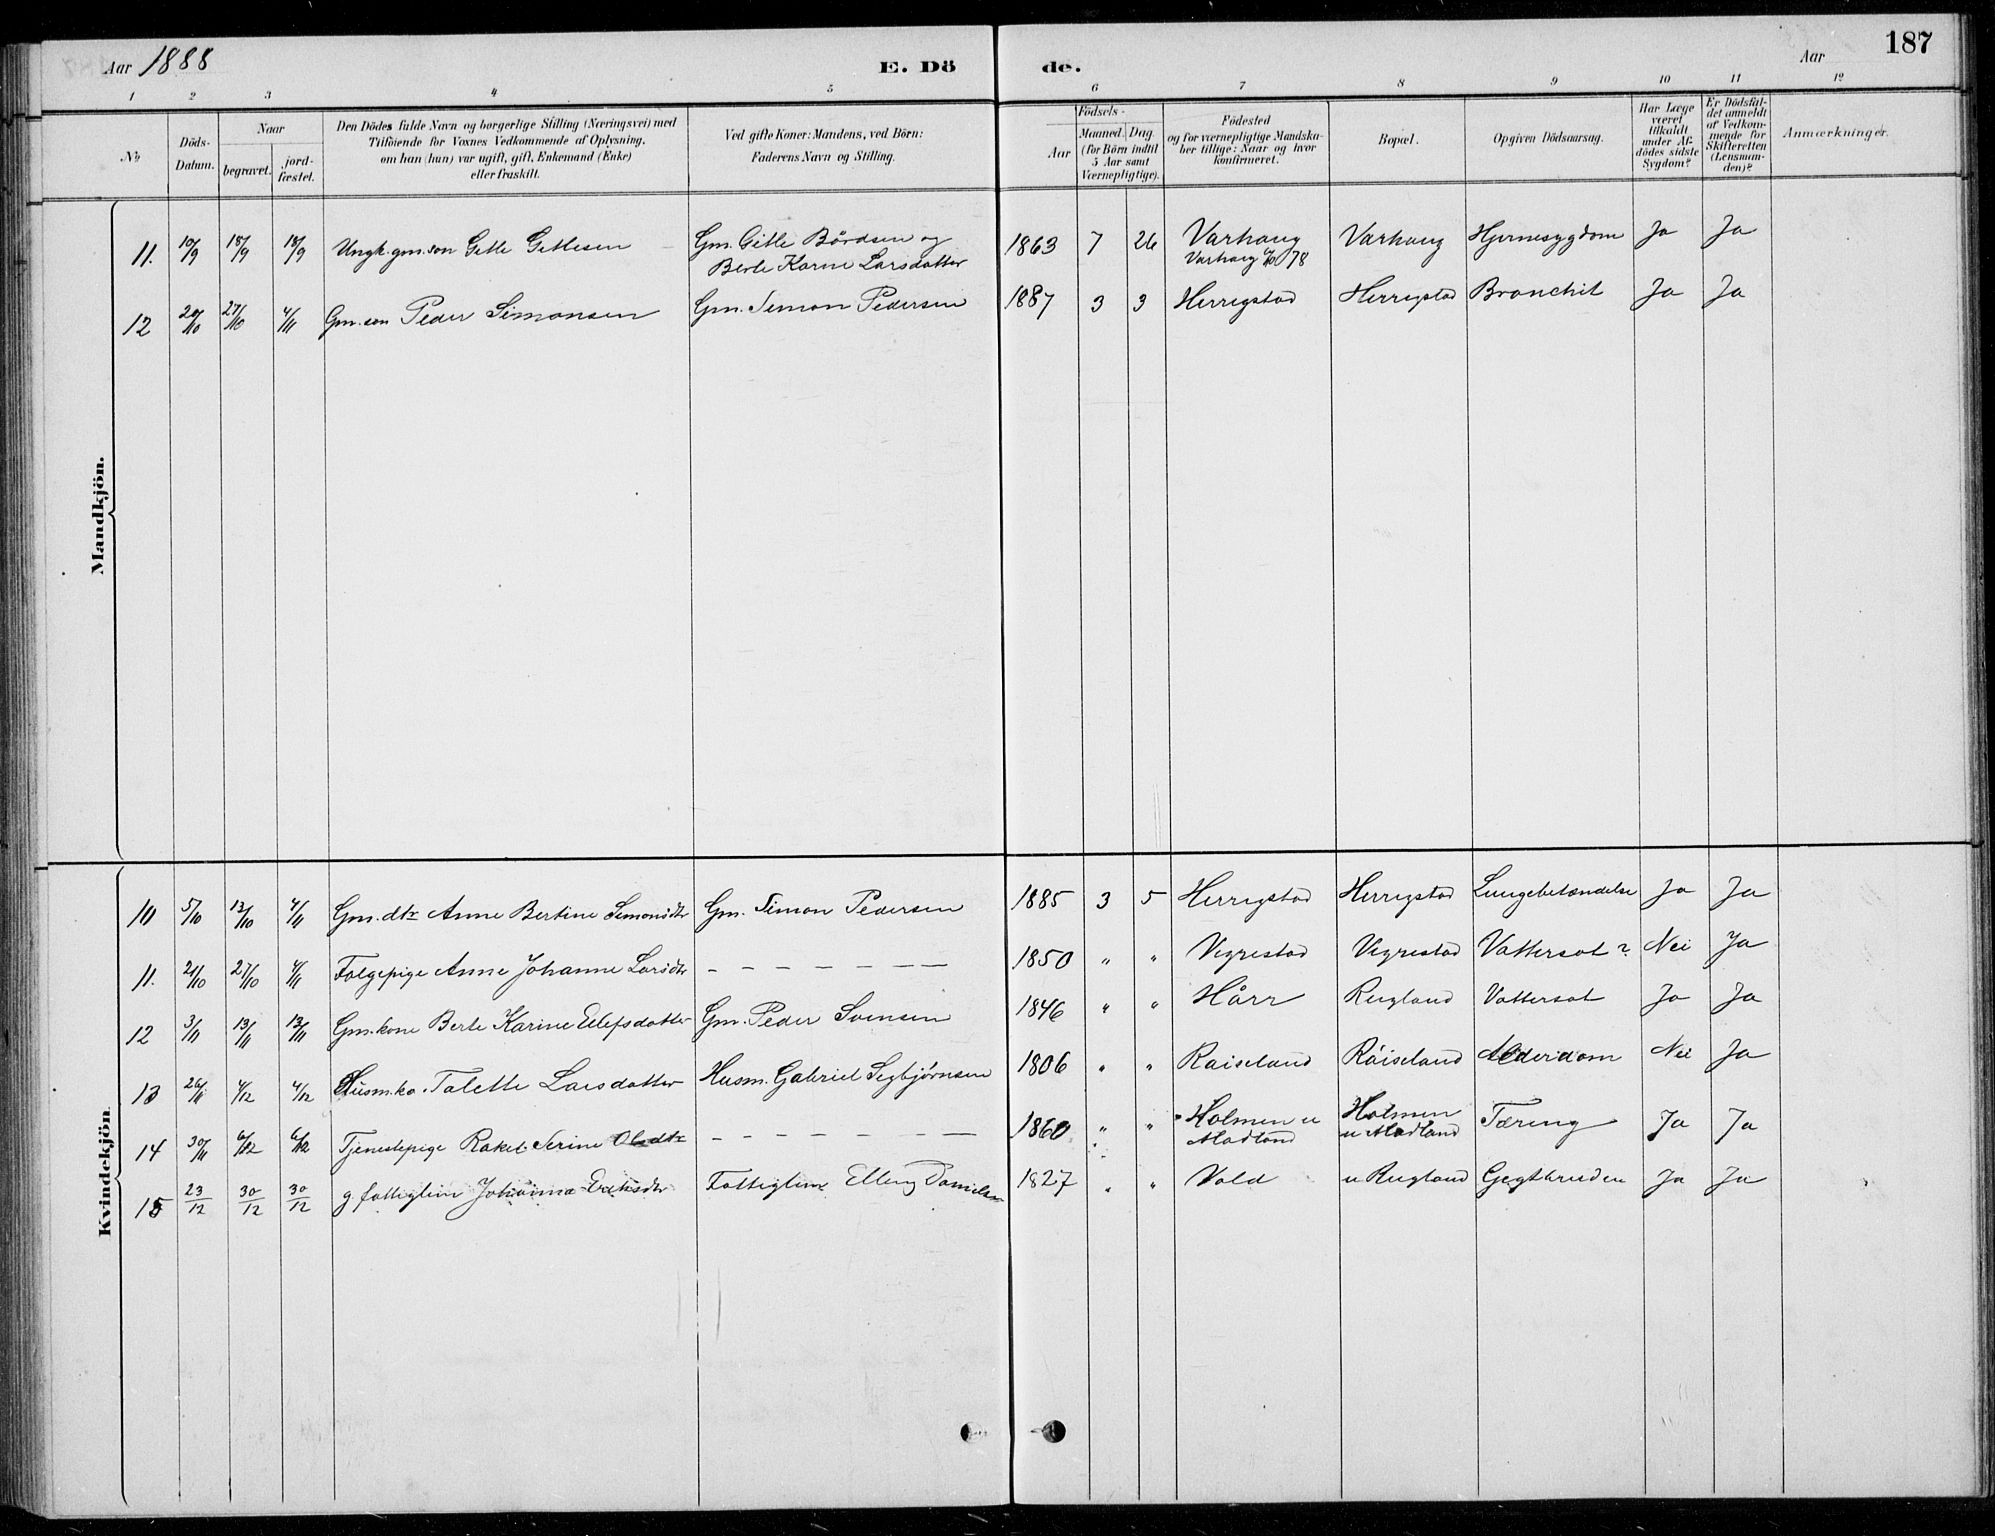 Aar 1888 E. Dö de. Aar 187
1 2 3 4 5 6 7 8 9 10 11 12
No
Döds-
Datum.
Naar
begravet.
jord-
fæstet.
Den Dödes fulde Navn og borgerlige Stilling (Næringsvei) med
Tilföiende for Voxnes Vedkommende af Oplysning,
om han (hun) var ugift, gift, Enkemand (Enke)
eller fraskilt.
Ved gifte Koner: Mandens, ved Börn:
Faderens Navn og Stilling.
Födsels-
Aar
Maaned. Dag
(for Börn indtil
5 Aar samt
Værnepligtige).
Födested
og for værnepligtige Mandska-
ber tillige: Naar og hvor
konfirmeret.
Bopæl.
Opgiven Dödsaarsag.
Har Læge
været
tilkaldt
under Af-
dödes sidste
Sygdom?
Er Dödsfal-
det anmeldt
af Vedkom-
mende for
Skifteretten
(Lensman-
den)?
Anmærkninger.
Mandkjön.
11. 10/9 18/9 18/9 Ungk. gm. søn Gitle Gitlesen Gm. Gitle Bårdsen og 1863 7 26 Varhaug Varhaug Hjernesygdom Ja Ja
Berte Karine Larsdatter Varhaug 78
12 20/10 27/10 4/11 Gm. søn Peder Simonsen Gm. Simon Pedersen 1887 3 3 Herrigstad Herrigstad Bronchit Ja Ja
Kvindekjön
10 5/10 13/10 4/11 Gm. dtr Anne Bertine Simonsdtr Gm. Simon Pedersen 1885 3 5 Herrigstad Herrigstad Lungebetændelse Ja Ja
11. 21/10 27/10 4/11 Følgepige Anne Johanne Larsdtr – – – – – – – 1850 " " Vigrestad Vigrestad Vattersot ? Nei Ja
12 3/11 13/11 13/11 Gm. kone Berte Karine Ellefsdatter Gm. Peder Svensen 1846 " " Hårr Rugland Vattersot Ja Ja
13 26/11 4/12 4/12 Husm. ko. Talette Larsdatter Husm. Gabriel Segbjørnsen 1806 " " Raiseland Räiseland Alderdom Nei Ja
14 30/11 6/12 6/12 Tjenestepige Rakel Serine Olsdtr – – – – – – – 1860 " " Holmen u Holmen Tæring Ja Ja
Madland u Madland
15 23/12 30/12 30/12 g fattiglem Johanna Fattiglem Elling Danielsen 1827 " " Vold u Rugland Gegtbruden Ja Ja